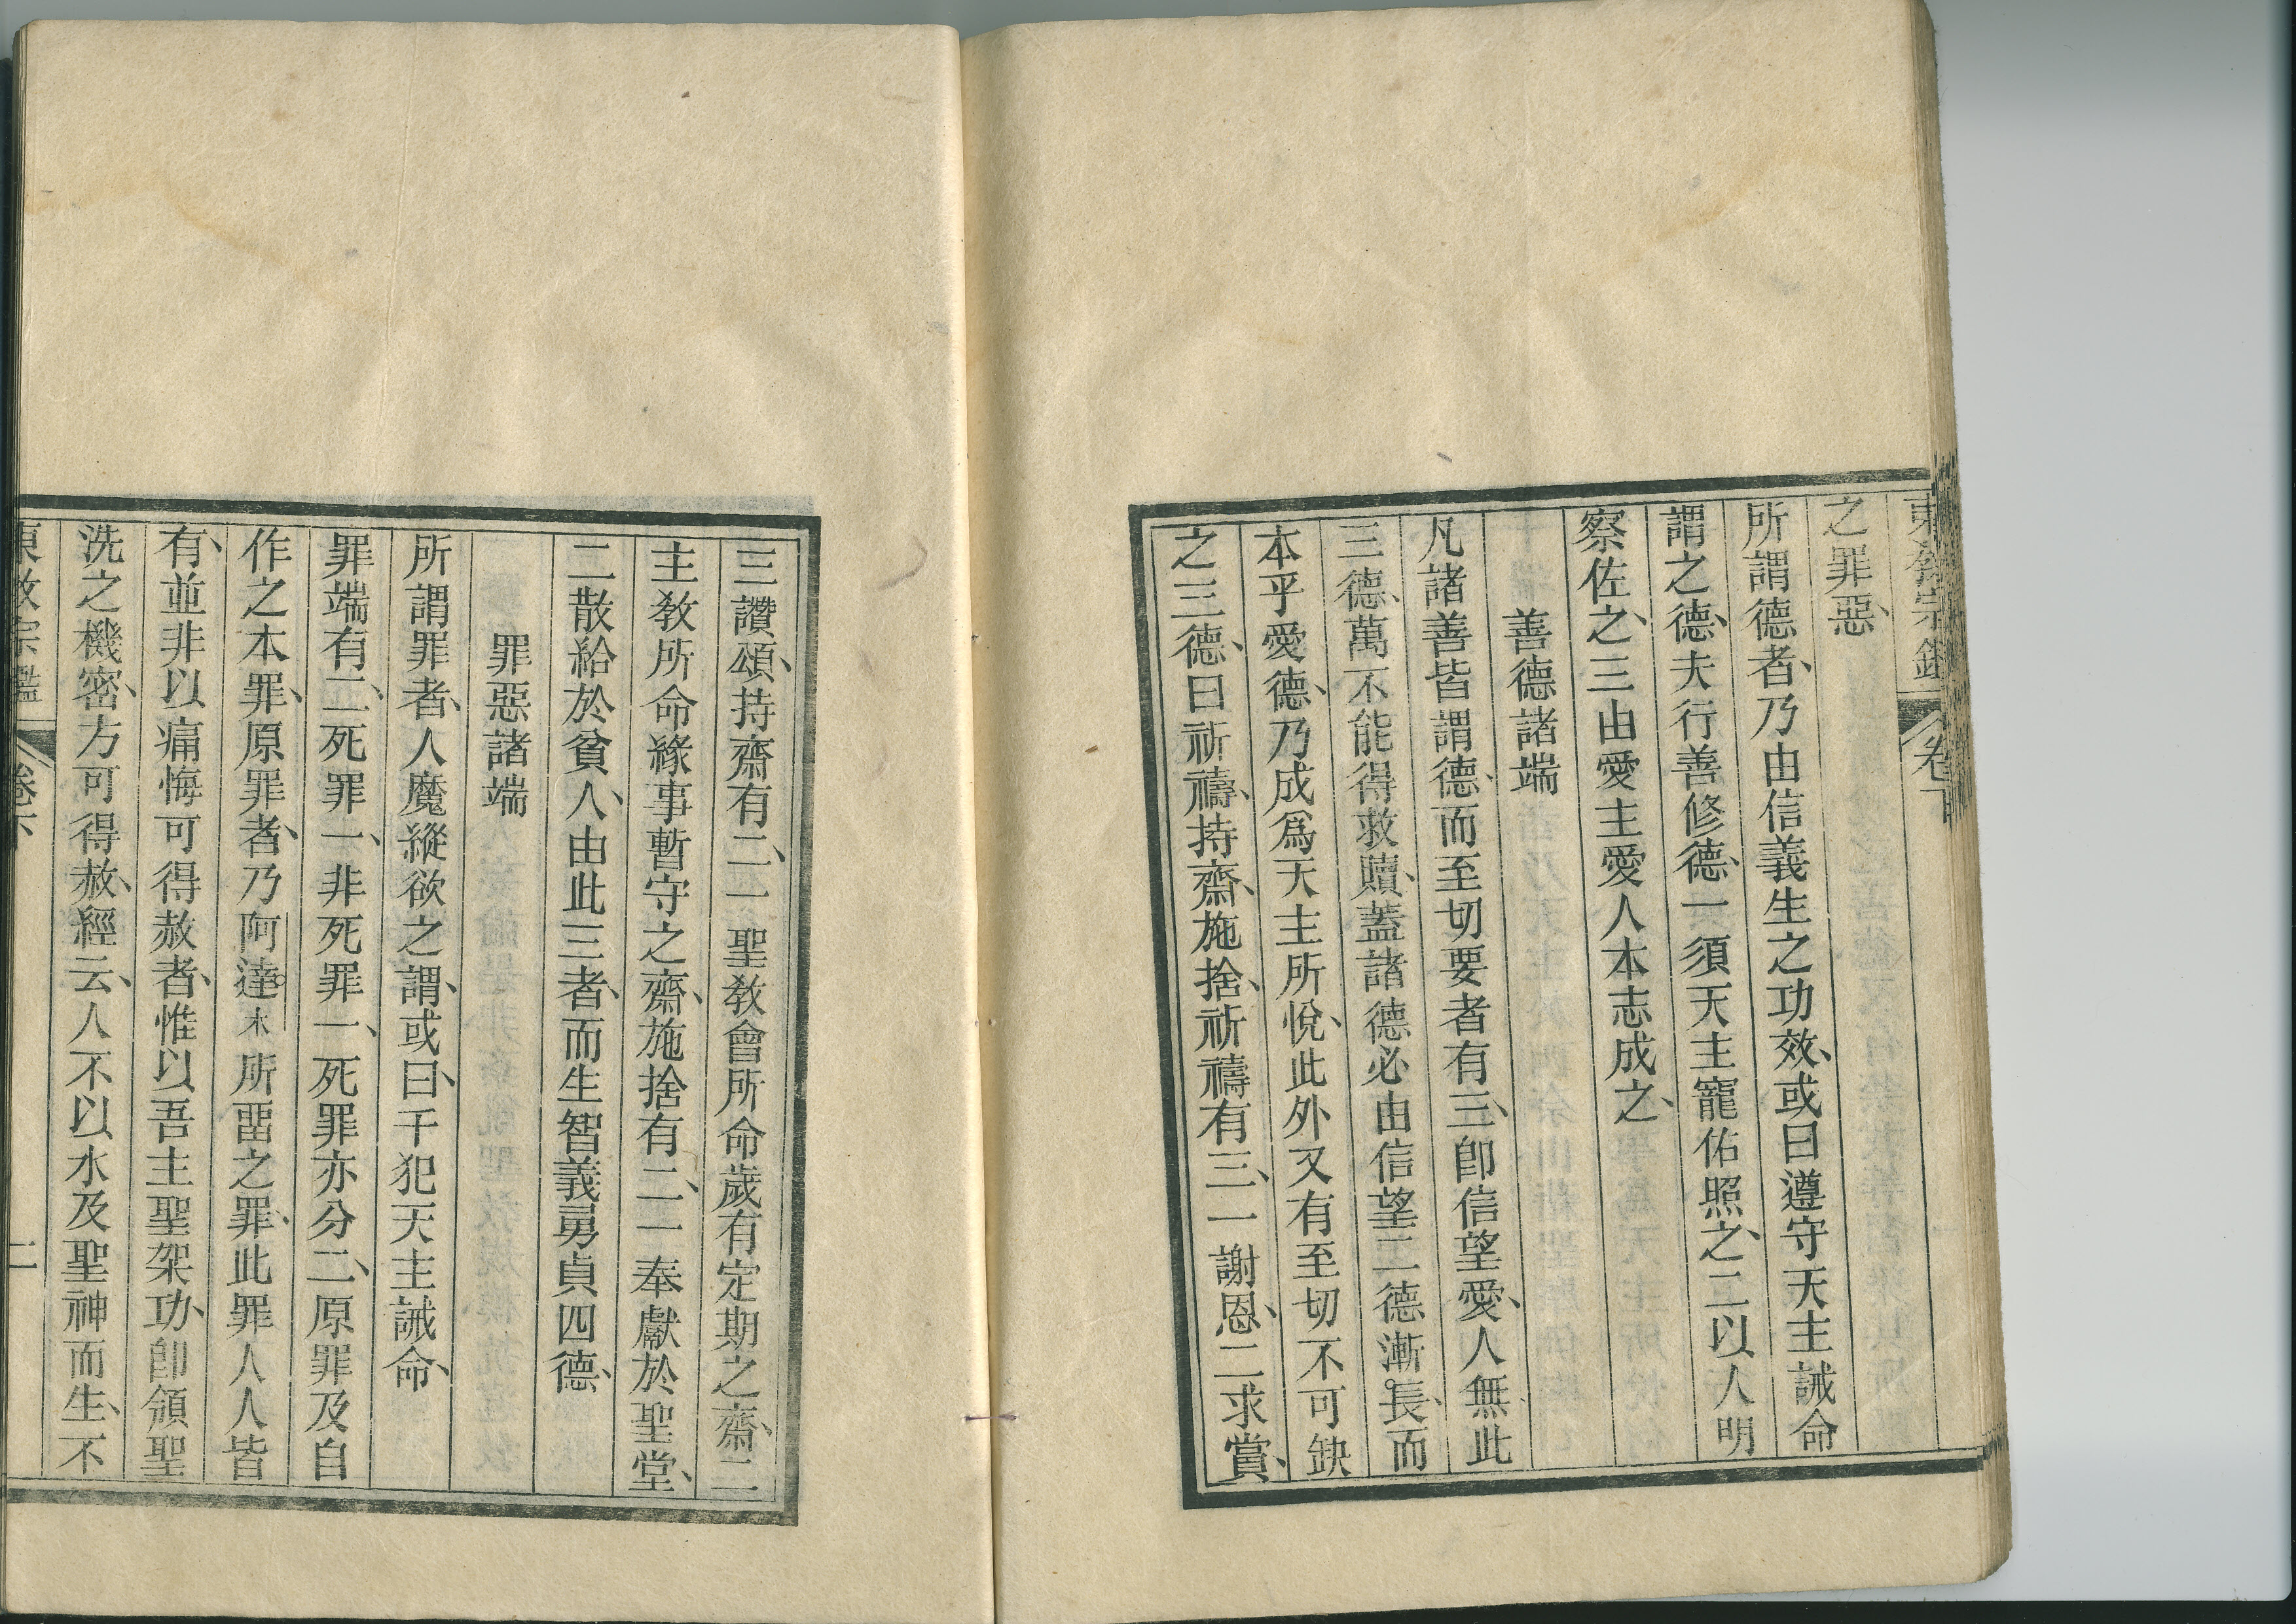 東教宗鑑 卷下
之罪惡、
所謂德者、乃由信義生之功效、或曰遵守天主誡命
謂之德、夫行善修德、一須天主寵佑照之、二以人明
察佐之、三由愛主愛人本志成之、
善德諸端
凡諸善皆謂德、而至切要者有三、卽信望愛、人無此
三德、萬不能得救贖、蓋諸德必由信望二德漸長、而
本乎愛德、乃成爲天主所悅、此外又有至切不可缺
之三德、曰祈禱、持齋、施捨、祈禱有三、一謝恩、二求賞、
三讚頌、持齋有二、一聖敎會所命歲有定期之齋、二
主敎所命緣事暫守之齋、施捨有二、一奉獻於聖堂、
二散給於貧人、由此三者、而生智義勇貞四德、
罪惡諸端
所謂罪者、人魔縱欲之謂、或曰、干犯天主誡命、
罪端有二、死罪一、非死罪一、死罪亦分二、原罪及自
作之本罪、原罪者、乃阿達木所畱之罪、此罪人人皆
有、並非以痛悔可得赦者、惟以吾主聖架功、卽領聖
洗之機密、方可得赦、經云、人不以水及聖神而生、不
東敎宗鑑 卷下 二